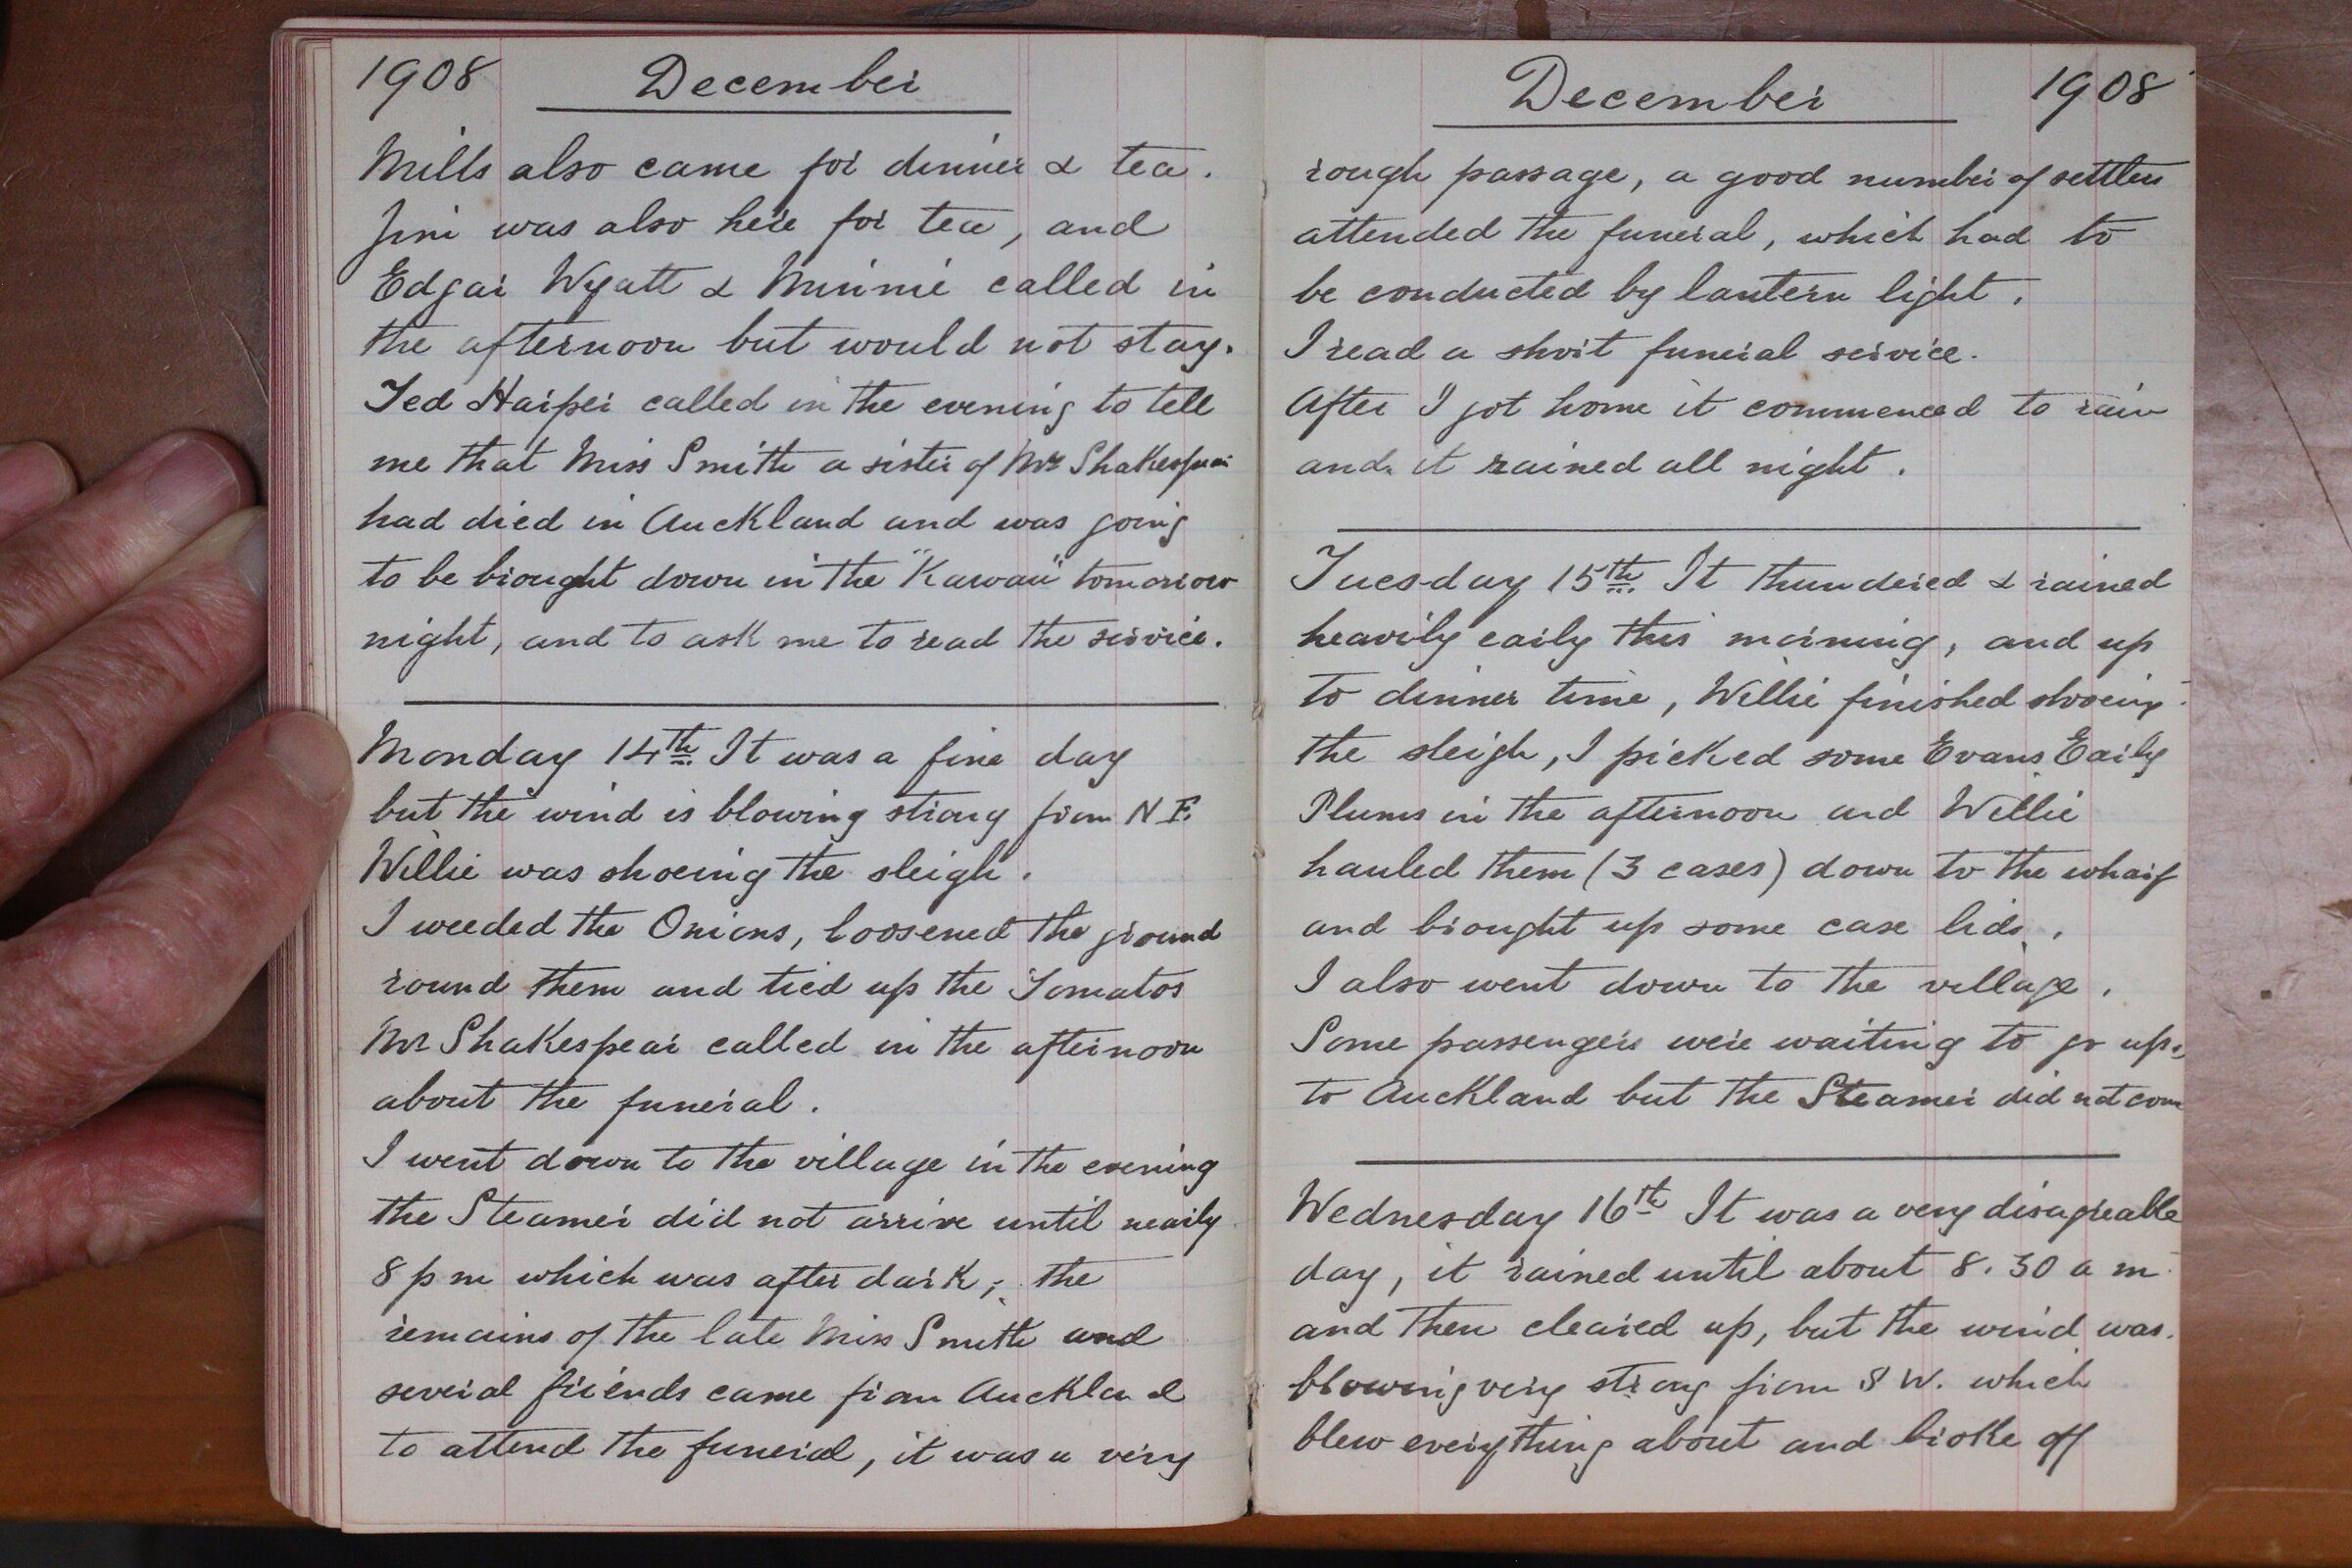 1908 December
Mills also came for dinner & tea.
Jim was also here for tea, and
Edgar Wyatt & Minnie called in
the afternoon but would not stay.
Ted Harper called in the evening to tell
me that Miss Smith a sister of Mr Shakespear
had died in Auckland and was going
to be brought down in the "Kawau" tomorrow
night, and to ask me to read the service.
Monday 14th It was a fine day
but the wind is blowing strong from N E
Willie was shoeing the sleigh.
I weeded the Onions, loosened the ground
round them and tied up the Tomatos
Mr Shakespear called in the afternoon
about the funeral.
I went down to the village in the evening
the Steamer did not arrive until nearly
8 pm which was after dark, the
remains of the late Miss Smith and
several friends came from Auckland
to attend the funeral, it was a very
December 1908
rough passage, a good number of settlers
attended the funeral, which had to
be conducted by lantern light.
I read a short funeral service.
After I got home it commenced to rain
and it rained all night.
Tuesday 15th It thundered & rained
heavily early this morning, and up
to dinner time, Willie finished shoeing
the sleigh, I picked some Evans Early
Plums in the afternoon and Willie
hauled them (3 cases) down to the wharf
and brought up some case lids.
I also went down to the village.
Some passengers were waiting to go up
to Auckland but the Steamer did not come
Wednesday 16th It was a very disagreable
day, it rained until about 8.30 a m
and then cleared up, but the wind was
blowing very strong from S W. which
blew everything about and broke off